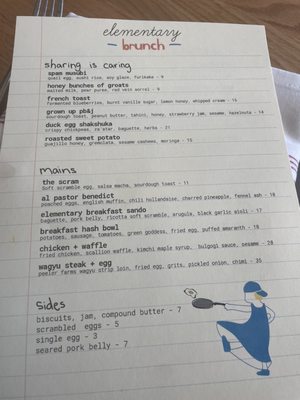 elementary
- brunch -
sharing is caring
spam musubi
quail egg, sushi rice, soy glaze, furikake - 9
honey bunches of groats
malted milk, pear puree, red vein sorrel - 9
french toast
fermented blueberries, burnt vanilla sugar, lemon honey, whipped cream - 15
grown up pb&j
sourdough toast, peanut butter, tahini, honey, strawberry jam, sesame, hazelnuts - 14
duck egg shakshuka
crispy chickpeas, za'atar, baguette, herbs - 21
roasted sweet potato
guajillo honey, gremolata, sesame cashews, moringa - 15
mains
the scram
Soft scramble egg, salsa macha, sourdough toast - 11
al pastor benedict
poached eggs, english muffin, chili hollandaise, charred pineapple, fennel ash - 18
elementary breakfast sando
baguette, pork belly, ricotta soft scramble, arugula, black garlic aioli - 17
breakfast hash bowl
potatoes, sausage, tomatoes, green goddess, fried egg, puffed amaranth - 18
chicken + waffle
fried chicken, scallion waffle, kimchi maple syrup, bulgogi sauce, sesame - 28
wagyu steak + egg
peeler farms wagyu strip loin, fried egg, grits, pickled onion, chimi - 35
Sides
biscuits, jam, compound butter - 7
scrambled eggs - 5
single egg - 3
seared pork belly - 7